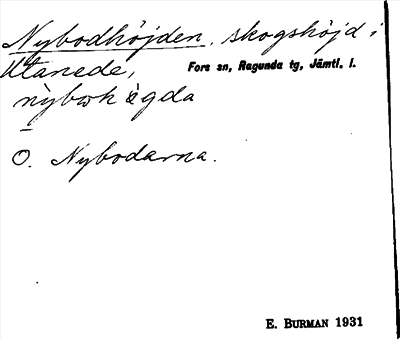 Nybodhöjden, skogshöjd i
Utanede, Fors sn, Ragunda tg, Jämtl. l.
O. Nybodarna.
E. BURMAN 1931